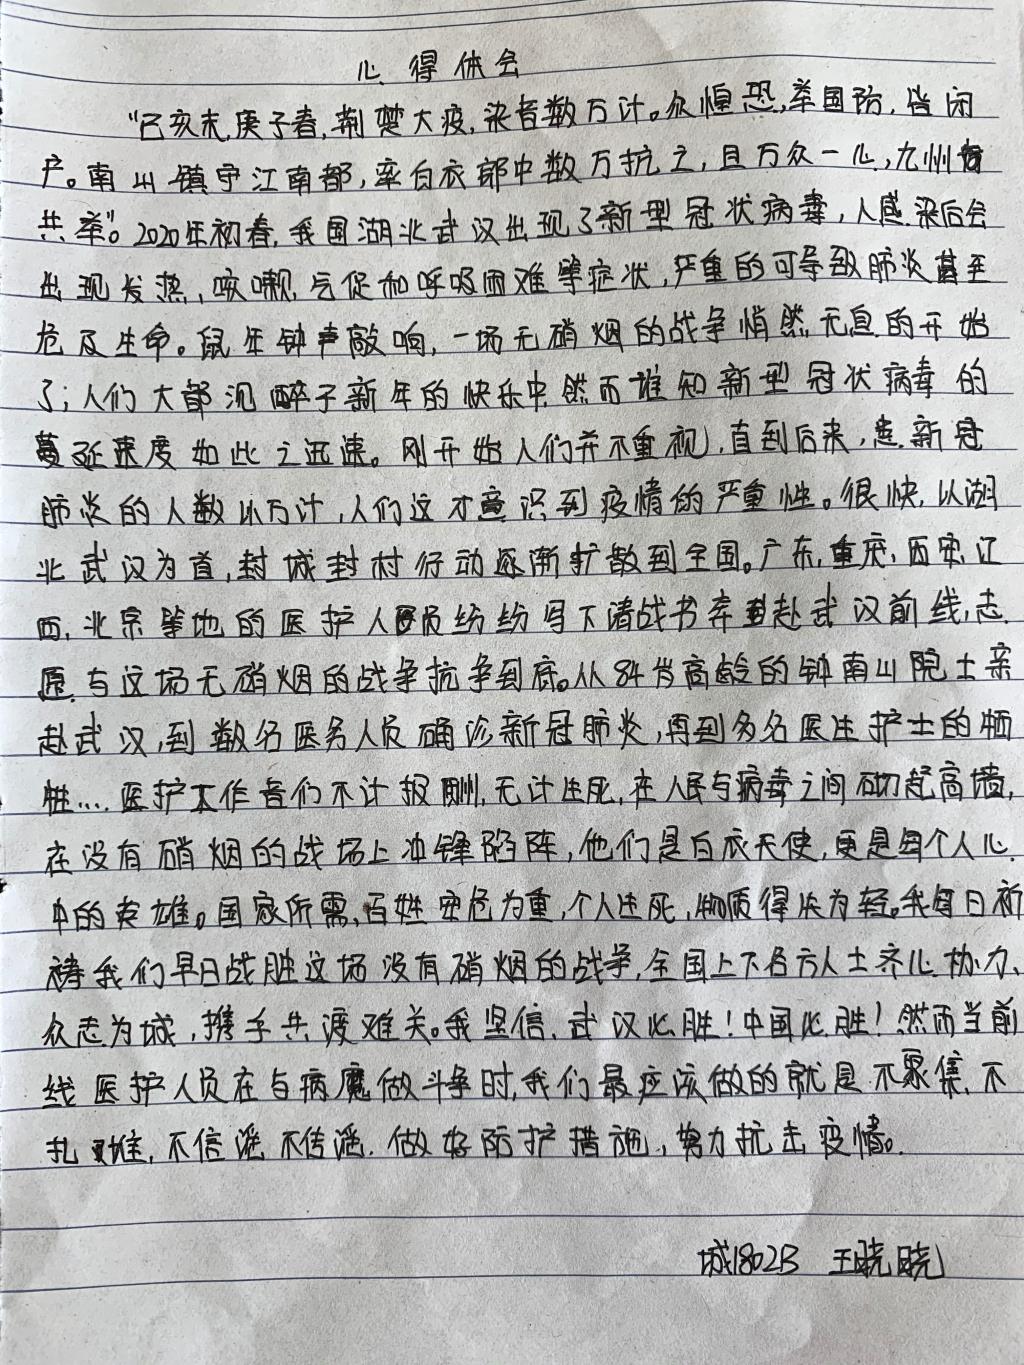 心得体会
“己亥末,庚子春,荆楚大疫,染者数万计。众惶恐,举国防,皆闭
户。南山镇守江南都,率白衣郎中数万抗之,且万众一心,九州
共举”。2020年初春,我国湖北武汉出现了新型冠状病毒,人感染后会
出现发热、咳嗽、气促和呼吸困难等症状,严重的可导致肺炎甚至
危及生命。鼠年钟声敲响,一场无硝烟的战争悄然无息的开始
了;人们大都沉醉于新年的快乐中,然而谁知新型冠状病毒的
蔓延速度如此之迅速。刚开始人们并不重视,直到后来,患新冠
肺炎的人数以万计,人们这才意识到疫情的严重性。很快,以湖
北武汉为首,封城封村行动逐渐扩散到全国。广东,重庆,西安,江
西,北京等地的医护人员纷纷写下请战书奔赴武汉前线,志
愿与这场无硝烟的战争抗争到底。从84岁高龄的钟南山院士亲
赴武汉,到数名医务人员确诊新冠肺炎,再到多名医生护士的牺
牲.... 医护工作者们不计报酬,无计生死,在人民与病毒之间砌起高墙,
在没有硝烟的战场上冲锋陷阵,他们是白衣天使,更是每个人心
中的英雄。国家所需,百姓安危为重,个人生死,物质得失为轻。我每日祈
祷我们早日战胜这场没有硝烟的战争,全国上下各方人士齐心协力、
众志为城,携手共渡难关。我坚信,武汉必胜!中国必胜!然而当前
线医护人员在与病魔做斗争时,我们最应该做的就是不聚集,不
扎堆,不信谣,不传谣,做好防护措施,努力抗击疫情。
城1802B 王晓晓